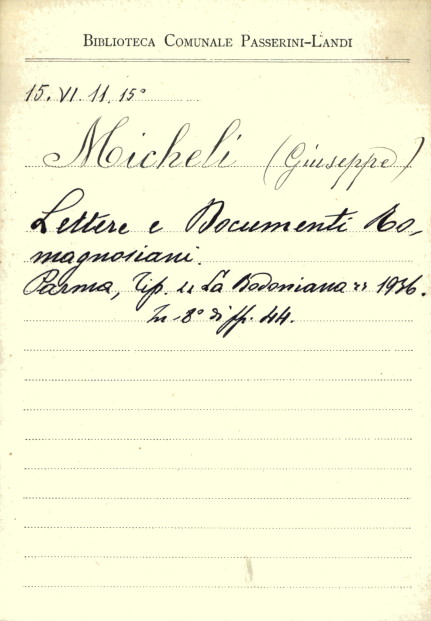 BIBLIOTECA COMUNALE PASSERINI-LANDI
15. VI. 11. 15°
Micheli (Giuseppe)
Lettere e Documenti Ro-
magnosiani.
Parma, Tip. "La Bodoniana" 1936.
In-8° di pp. 44.